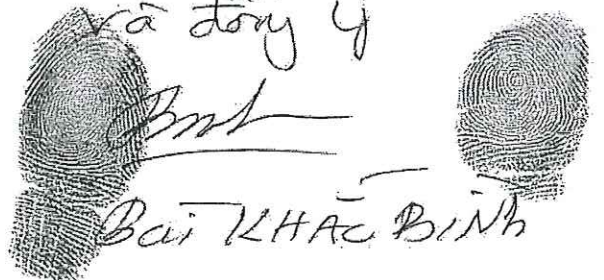 và đồng ý
Bùi KHẮC BÌNH